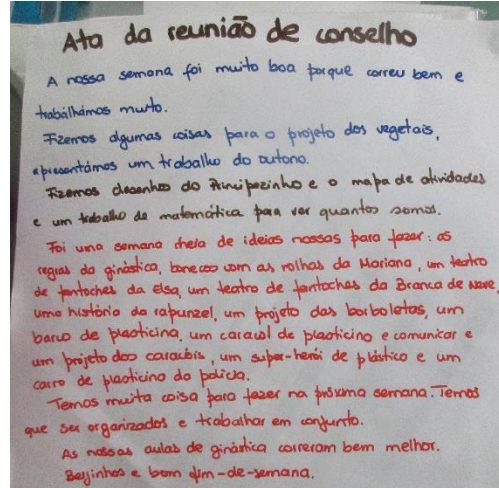 Ata da reunião de conselho
A nossa semana foi muito boa porque correu bem e
trabalhámos muito.
Fizemos algumas coisas para o projeto dos vegetais,
apresentámos um trabalho do outono.
Fizemos desenho do Principezinho e o mapa de atividades
e um trabalho de matemática para ver quantos somos.
Foi uma semana cheia de ideias nossas para fazer: as
regras da ginástica, bonecos com as rolhas da Mariana, um teatro
de fantoches da Elsa, um teatro de fantoches da Branca de Neve,
uma história da rapunzel, um projeto das borboletas, um
barco de plasticina, um caracol de plasticina e comunicar e
um projeto dos caracóis, um super-herói de plástico e um
carro de plasticina da polícia.
Temos muita coisa para fazer na próxima semana. Temos
que ser organizados e trabalhar em conjunto.
As nossas aulas de ginástica correram bem melhor.
Beijinhos e bom fim-de-semana.